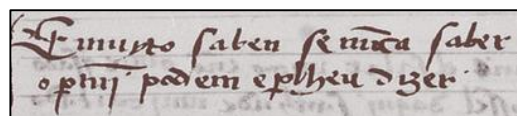 E muyto saben se nũca saber
o ꝑmj̃ podem e ꝑlheu dizer